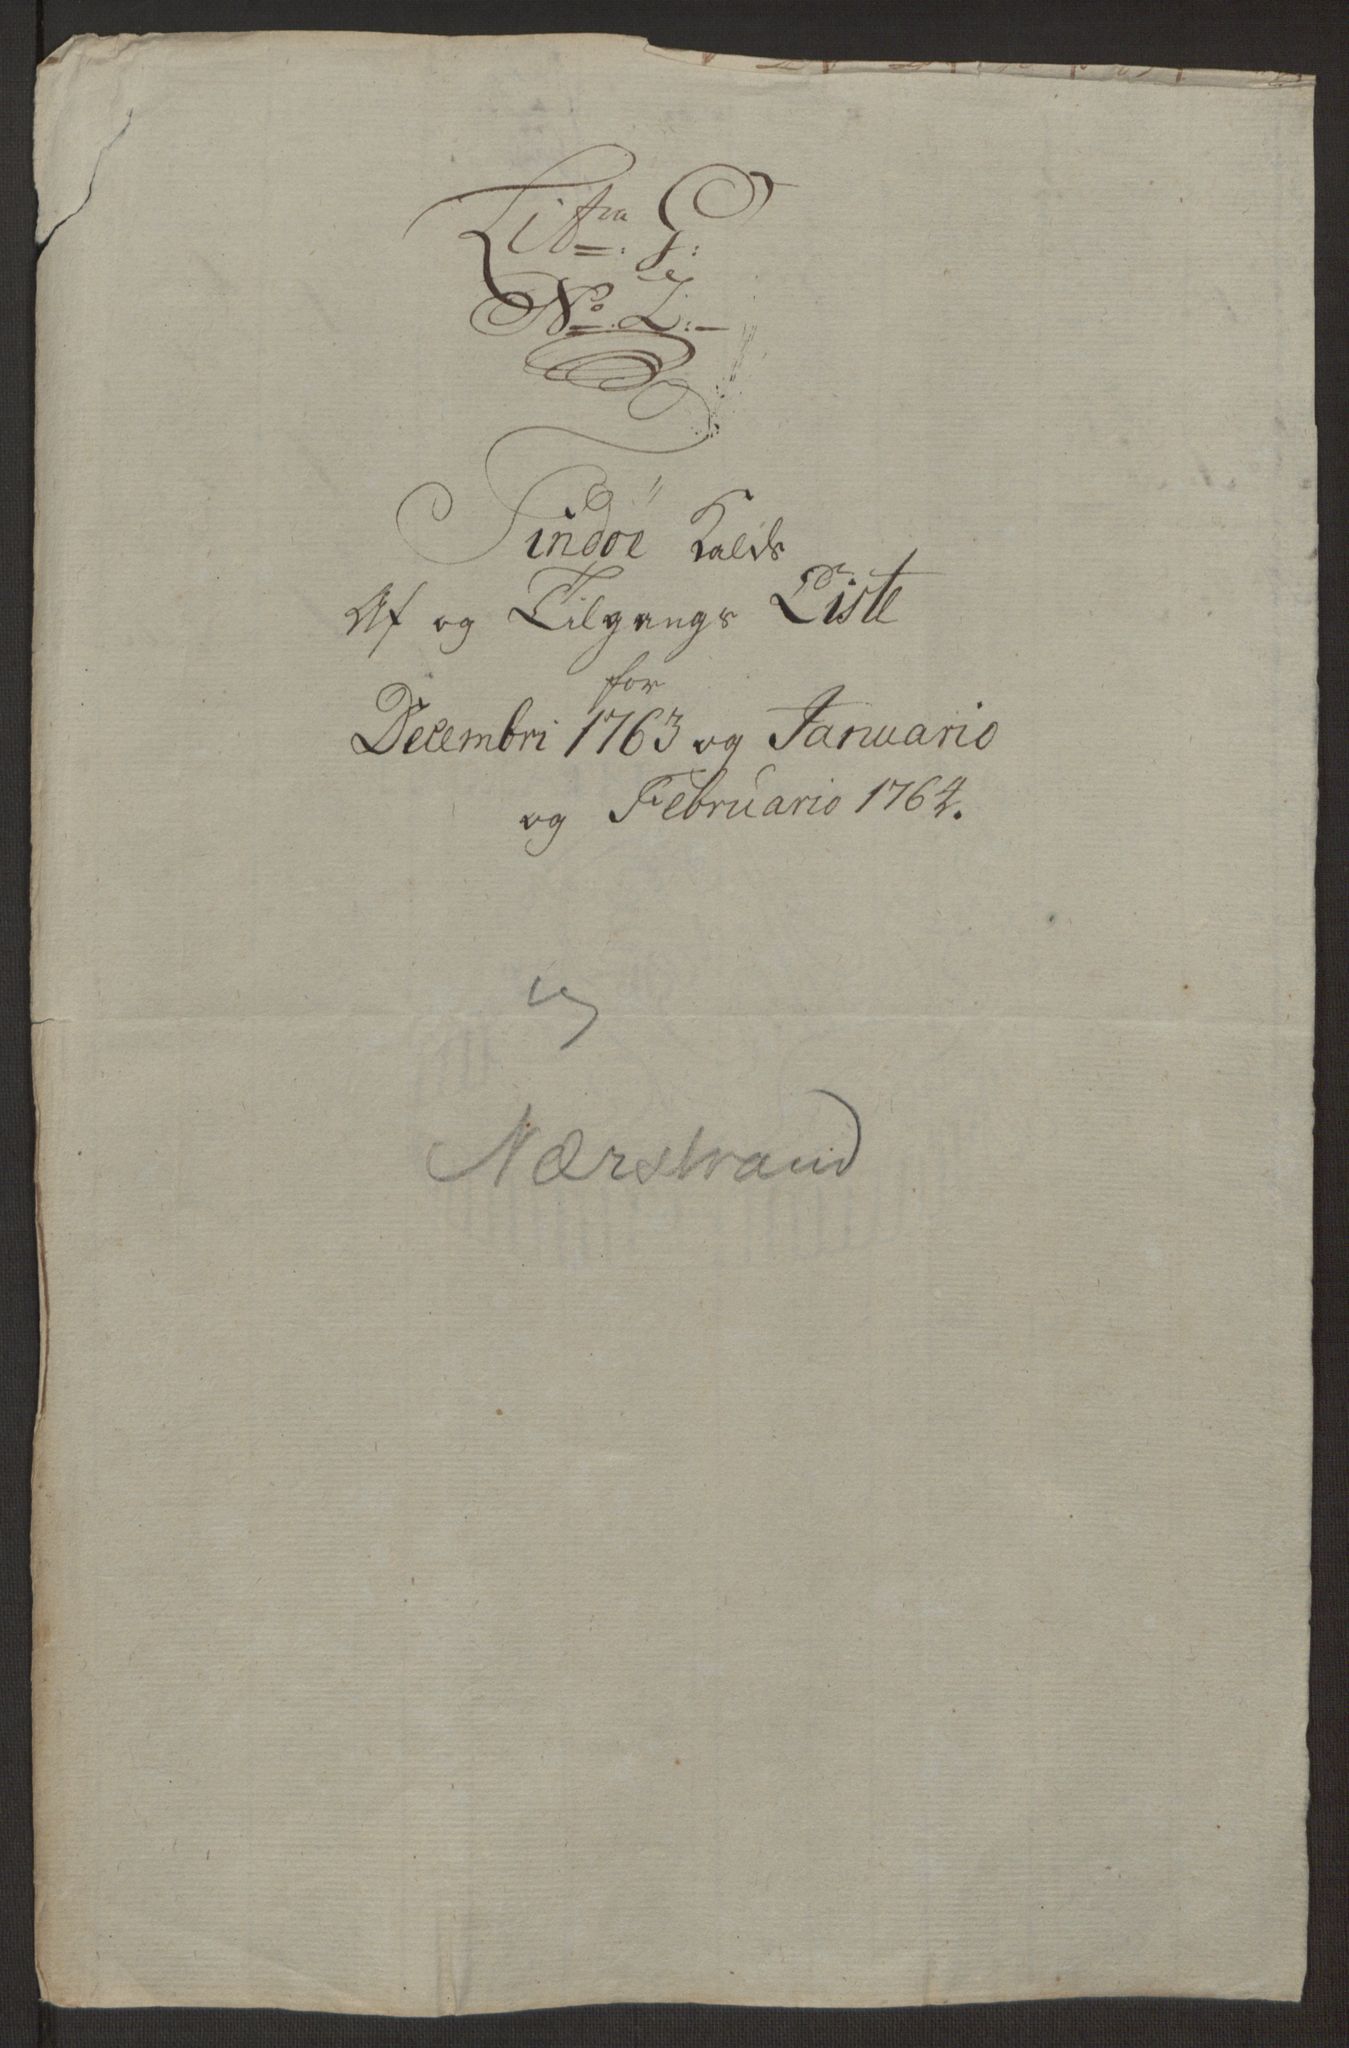 Litra G:
No. 2:
Findöe Kalds
Af og Tilgangs Liste
for
Decembri 1763 og Januario
og Februario 1764.
Nærstrand